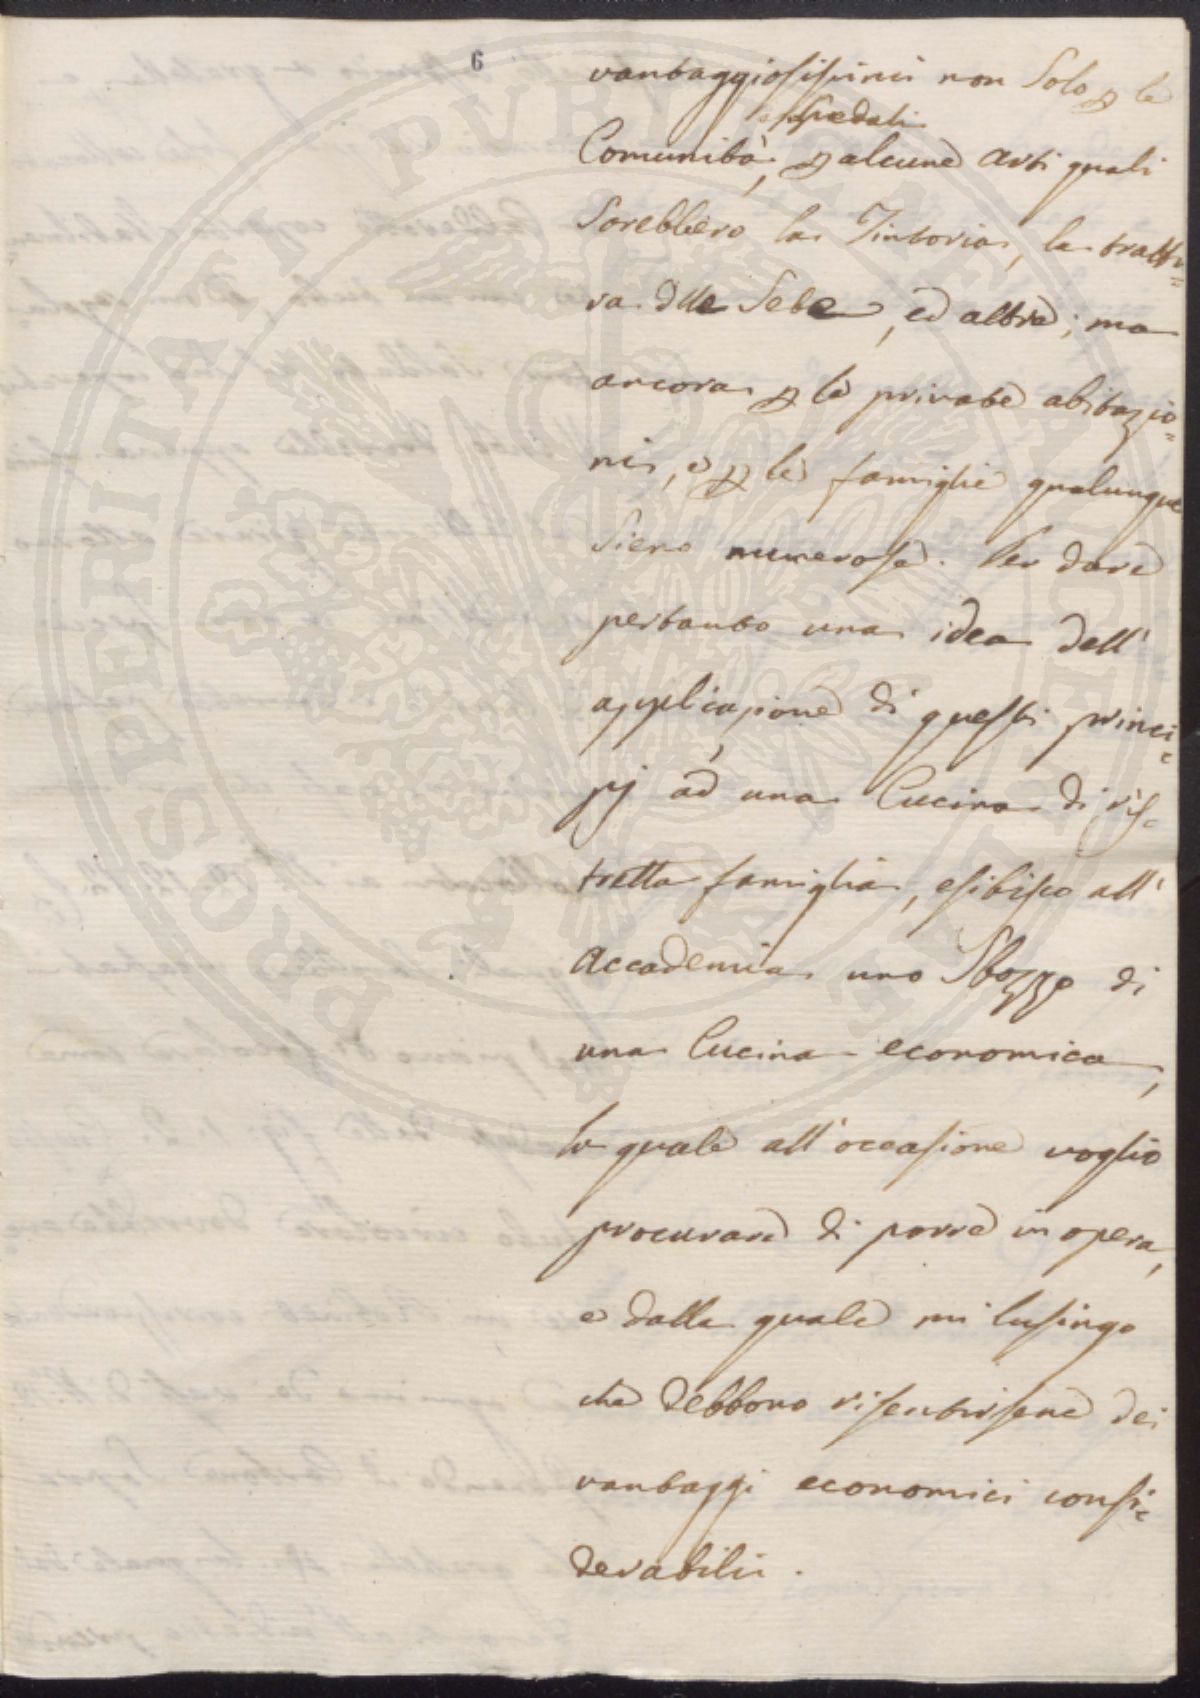 6
vantaggiosissimi non solo p le
e spedali
Comunità, p alcune arti quali
sarebbero la Tintoria, la trattu=
ra dlle Sete, ed altre; ma
ancora p le private abitazio=
ni, e p le famiglie qualunque
sieno numerose. Per dare
pertanto una idea dell'
applicazione di questi princi=
pj ad una Cucina di ris=
tretta famiglia, esibisco all'
Accademia uno Sbozzo di
una Cucina economica,
la quale all'occasione voglio
procurare di porre in opera,
e dalla quale mi lusingo
che debbono risentirsene dei
vantaggi economici consi=
derabili.
PROSPERITATI PUBLICAE